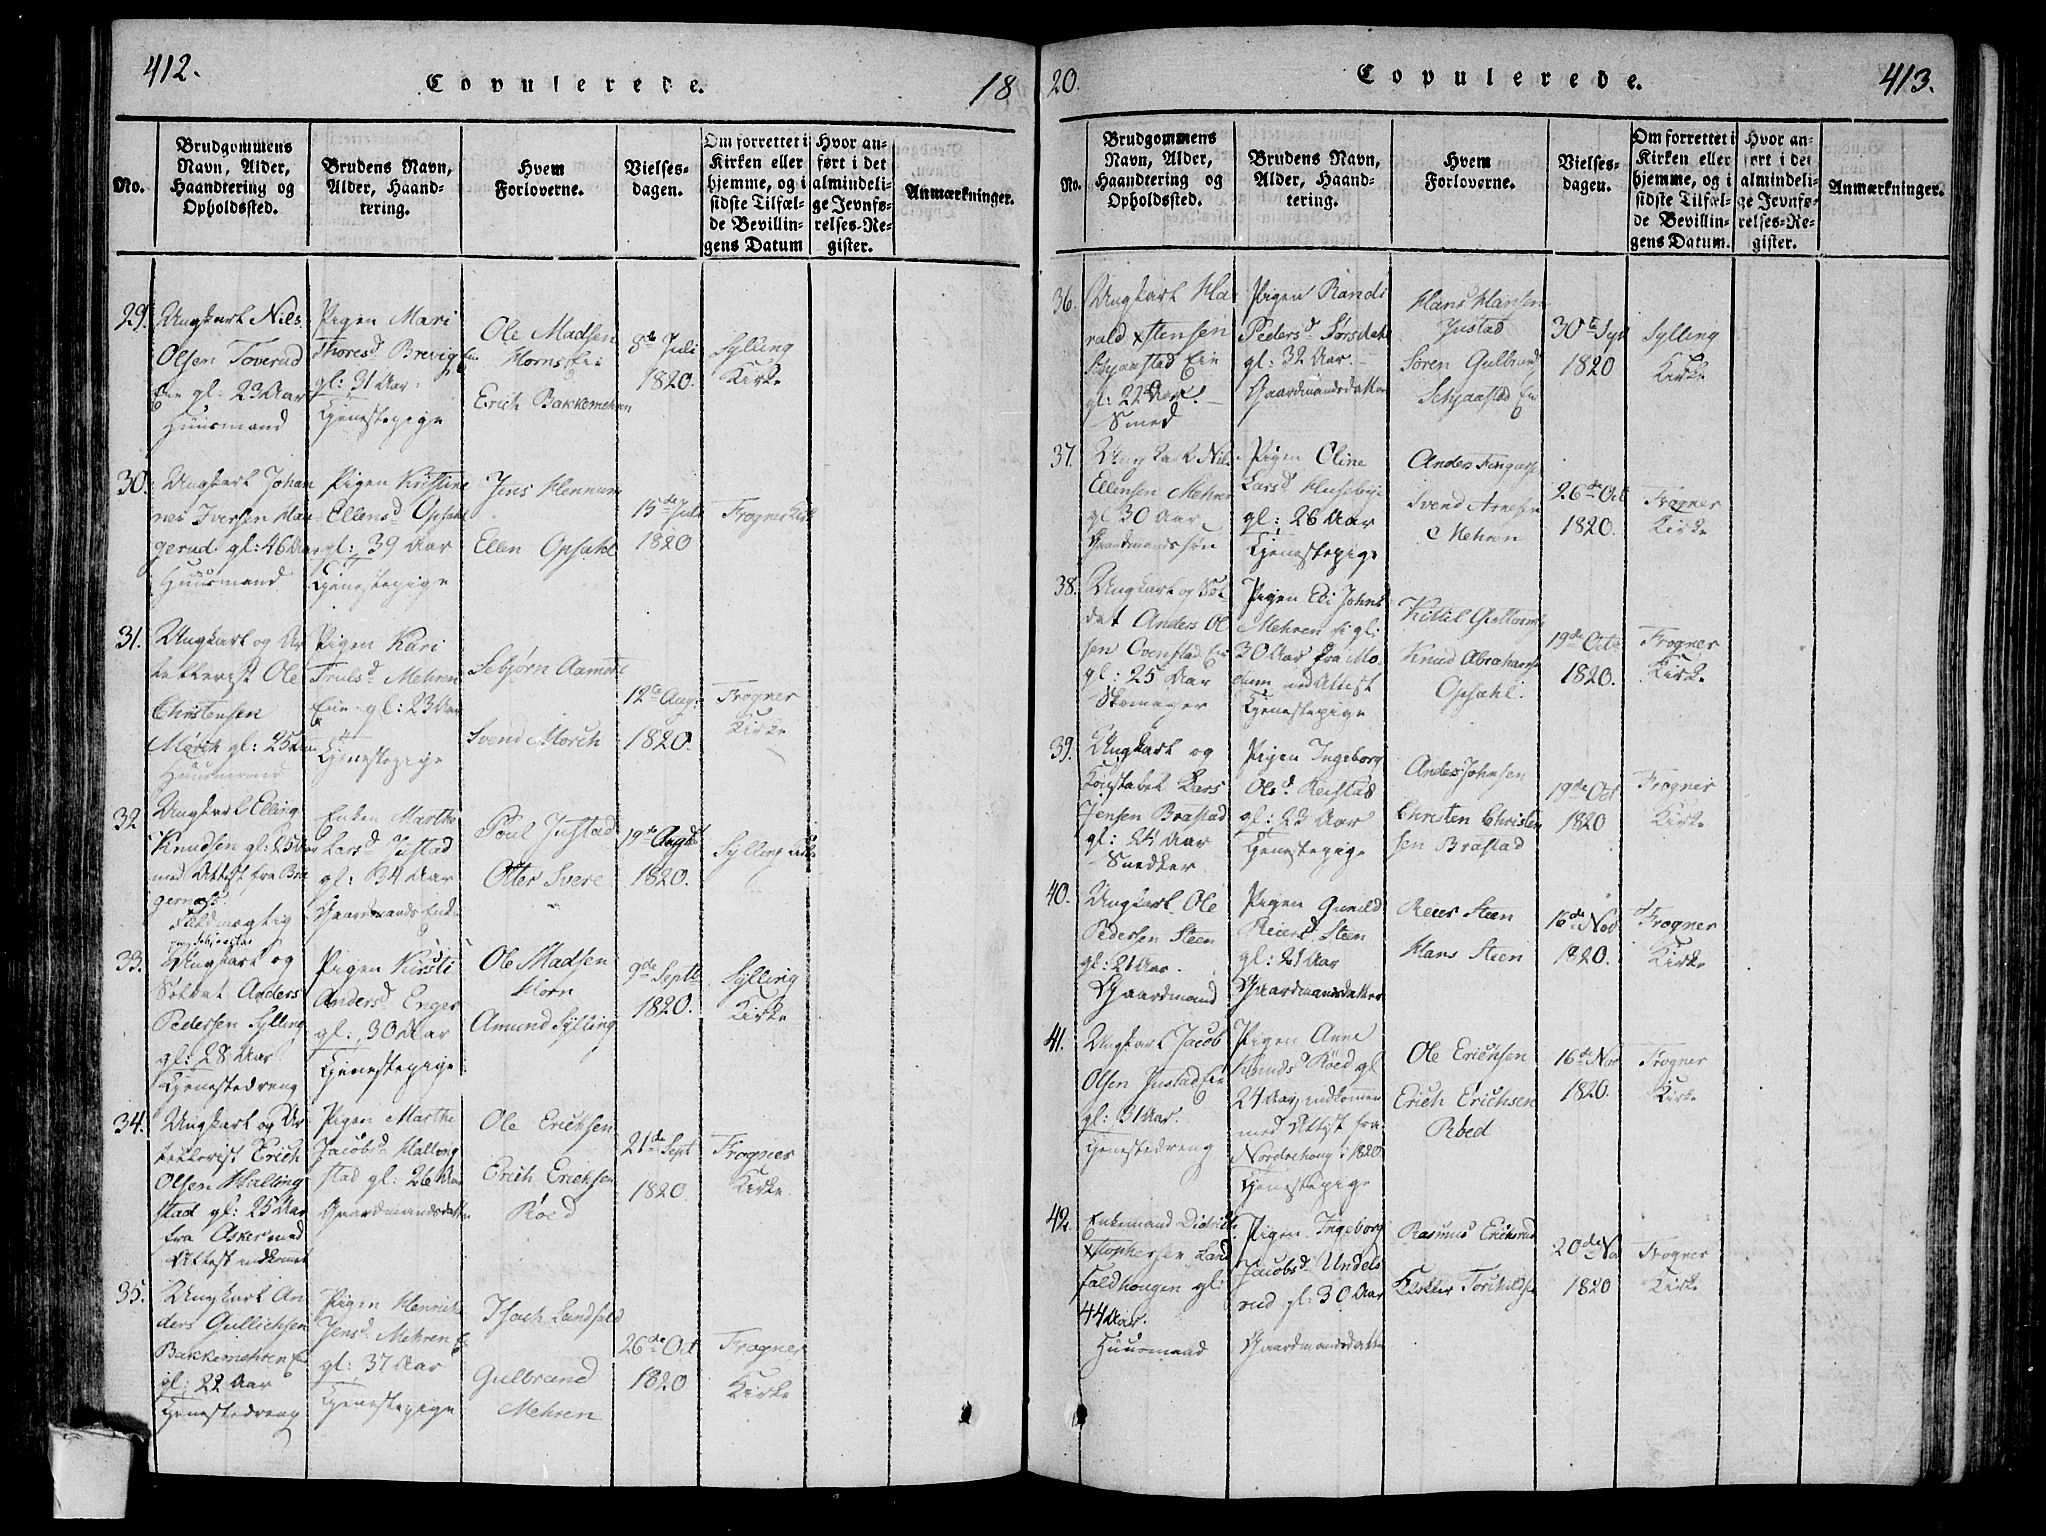 412.
Copulerede.
18
No.
Brudgommens
Navn, Alder,
Haandtering og
Opholdssted.
Brudens Navn,
Alder, Haand-
tering.
Hvem
Forloverne.
Vielses-
dagen.
Om forrettet i
Kirken eller
hjemme, og i
sidste Tilfæl-
de Bevillin-
gens Datum
Hvor an-
ført i det
almindeli-
ge Jevnfø-
relses-Re-
gister.
Anmærkninger.
29.
Ungkarl Nils
Olsen Toverud
Eie gl: 23 Aar
Huusmand
Pigen Mari
Thoresd. Brevig Eie
gl: 31 Aar
Tjenestepige
Ole Madsen
Horns Eie
Erich Bakkemehren
8de Juli
1820.
Sylling
Kirke
30.
Ungkarl Johan
nes Iversen Hau
gerud gl: 46 Aar
Huusmand
Pigen Kirstine
Ellensd. Opsahl
gl: 39 Aar
Tjenestepige
Jens Hennum
Ellen Opsahl
15de Juli
1820
Frogner Kirke
31.
Ungkarl og Ar
tellerist Ole
Christensen
Mörch gl: 25 Aar
Huusmand
Pigen Kari
Trulsd. Mehren
Eie gl: 23 Aar
Tjenestepige
Sebjørn Aamodt
Svend Mörch
12te Aug:
1820.
Frogner
Kirke
32
Ungkarl Elling
Knudsen gl: 25 Aar
med Attest fra Bra
gernæs
Fuldmægtig
Enken Marthe
Larsd. Justad
gl: 34 Aar
Gaardmands Enke
Poul Justad
Otter Svere
19de Augst
1820.
Sylling Kirke
33.
Ungkarl og
Soldat Anders
Pedersen Sylling
gl: 28 Aar
Tjenestedreng
Pigen Kirsti
Andersd. Enger
gl: 30 Aar
Tjenestepige
Ole Madsen
Horn
Amund Sylling
9de Septb
1820.
Sylling
Kirke
34.
Ungkarl og Ar
tellerist Erich
Olsen Halling
stad gl: 25 Aar
fra Asker med
Attest indkomet
Pigen Marthe
Jacobsd. Halling
stad gl: 26 Aar
Gaardmandsdatter
Ole Erichsen
Erich Erichsen
Röed
21de Sept
1820.
Frogner
Kirke
35.
Ungkarl An
ders Gullichsen
Bakkemehren Eie
gl: 22 Aar
Tjenestedreng
Pigen Henrich
Jensd. Mehren Eie
gl: 37 Aar
Tjenestepige
Isach Landfald
Gulbrand
Mehren
26de Oct
1820
Frogner
Kirke
20.
Copulerede.
413.
No.
Brudgommens
Navn, Alder,
Haandtering og
Opholdssted.
Brudens Navn,
Alder, Haand-
tering.
Hvem
Forloverne.
Vielses-
dagen.
Om forrettet i
Kirken eller
hjemme, og i
sidste Tilfæl-
de Bevillin-
gens Datum.
Hvor an-
ført i det
almindeli-
ge Jevnfø-
relses-Re-
gister.
Anmærkninger.
36.
Ungkarl Ha
rald Xstensen
Schjaastad Eie
gl: 22 Aar.
Smed
Pigen Randi
Pedersd. Sørsdahl
gl: 32 Aar.
Gaardmandsdatter
Hans Hansen
Justad
Søren Gulbrand
Schjaastad Eie
30te Sept
1820
Sylling
Kirke
37.
Ungkarl Nils
Ellensen Mehren
gl 30 Aar
Gaardmandssøn
Pigen Oline
Larsd. Huseby
gl: 26 Aar
Tjenestepige
Svend Arnesen
Mehren
26de Oct
1820.
Frogner
Kirke
38.
Ungkarl og Sol
dat Anders Ol
sen Ovenstad Eie
gl: 25 Aar
Skomager
Pigen Eli Johnsd
Mehren Ei gl:
30 Aar fra Mo
dum med Attest
Tjenestepige
Kittil Guttorms
Knud Abrahams
Opsahl.
19de Octb
1820.
Frogner
Kirke
39.
Ungkarl og
Konstabel Lars
Jensen Brastad
gl: 24 Aar
Snedker
Pigen Ingeborg
Olesd. Reistad
gl: 23 Aar
Tjenestepige
Anders Johnsen
Christen Christen
sen Brastad
19de Oct
1820
Frogner
Kirke
40.
Ungkarl Ole
Pedersen Steen
gl: 21 Aar.
Gaardmand
Pigen Gunild
Reiersd. Steen
gl: 21 Aar
Gaardmandsdatter
Reier Steen
Hans Steen
16de Nov
1820.
Frogner
Kirke
41.
Ungkarl Jacob
Olsen Justad Eie
gl: 31 Aar.
Tjenestedreng
Pigen Anne
Knudsd. Röed gl
24 Aar, indkomen
med Attest fra
Nordrehoug i 1820
Tjenestepige
Ole Erichsen
Erich Erichsen
Röed
16de Nov
1820.
Frogner
Kirke
42.
Enkemand Didrich
Xstophersen Land
faldhougen gl:
44 Aar.
Huusmand
Pigen Ingeborg
Jacobsd. Undels
rud gl: 30 Aar
Gaardmandsdatter
Rasmus Eriksrud
Torchildsen
20de Nov
1820
Frogner
Kirke